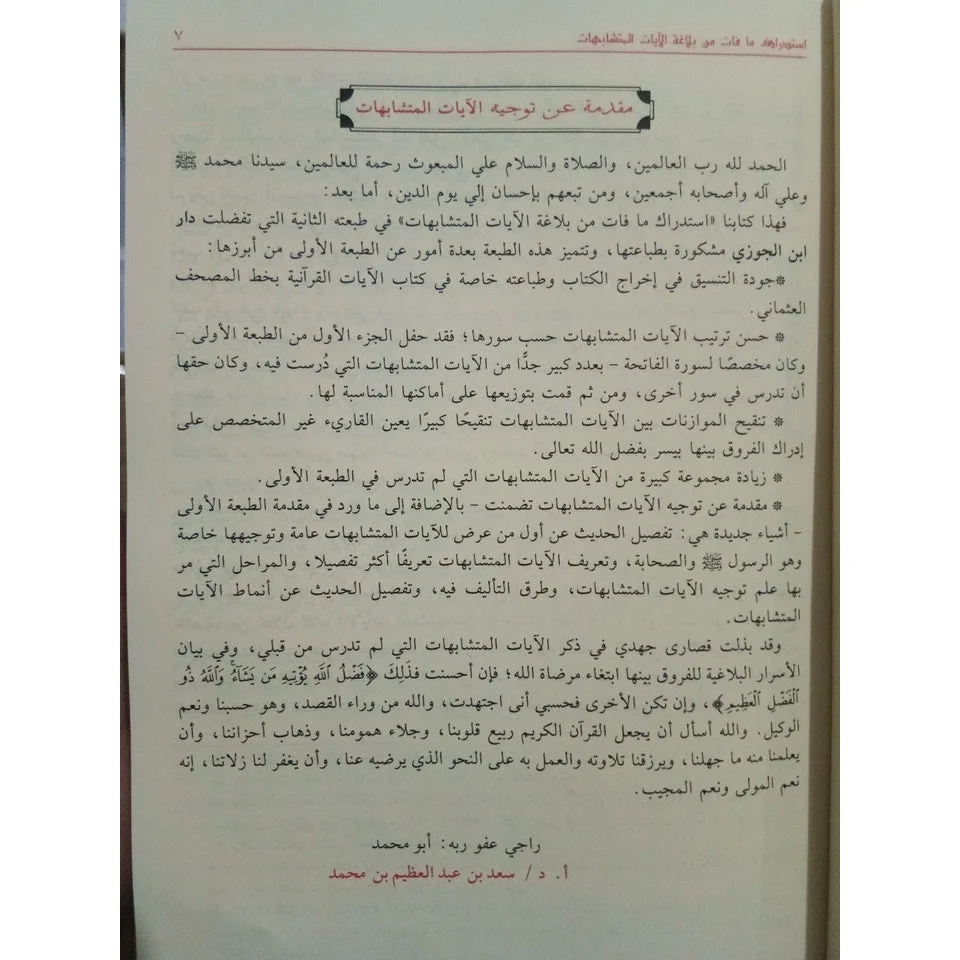 استدراك ما فات من بلاغة الآيات المتشابهات ٧
مقدمة عن توجيه الآيات المتشابهات
الحمد لله رب العالمين، والصلاة والسلام علي المبعوث رحمة للعالمين، سيدنا محمد ﷺ
وعلي آله وأصحابه أجمعين، ومن تبعهم بإحسان إلي يوم الدين، أما بعد:
فهذا كتابنا «استدراك ما فات من بلاغة الآيات المتشابهات» في طبعته الثانية التي تفضلت دار
ابن الجوزي مشكورة بطباعتها، وتتميز هذه الطبعة بعدة أمور عن الطبعة الأولى من أبرزها:
*جودة التنسيق في إخراج الكتاب وطباعته خاصة في كتاب الآيات القرآنية بخط المصحف
العثماني.
* حسن ترتيب الآيات المتشابهات حسب سورها؛ فقد حفل الجزء الأول من الطبعة الأولى –
وكان مخصصًا لسورة الفاتحة – بعدد كبير جدًّا من الآيات المتشابهات التي دُرست فيه، وكان حقها
أن تدرس في سور أخرى، ومن ثم قمت بتوزيعها على أماكنها المناسبة لها.
* تنقيح الموازنات بين الآيات المتشابهات تنقيحًا كبيرًا يعين القاريء غير المتخصص على
إدراك الفروق بينها بيسر بفضل الله تعالى.
* زيادة مجموعة كبيرة من الآيات المتشابهات التي لم تدرس في الطبعة الأولى.
* مقدمة عن توجيه الآيات المتشابهات تضمنت – بالإضافة إلى ما ورد في مقدمة الطبعة الأولى
– أشياء جديدة هي: تفصيل الحديث عن أول من عرض للآيات المتشابهات عامة وتوجيهها خاصة
وهو الرسول ﷺ والصحابة، وتعريف الآيات المتشابهات تعريفًا أكثر تفصيلا، والمراحل التي مر
بها علم توجيه الآيات المتشابهات، وطرق التأليف فيه، وتفصيل الحديث عن أنماط الآيات
المتشابهات.
وقد بذلت قصارى جهدي في ذكر الآيات المتشابهات التي لم تدرس من قبلي، وفي بيان
الأسرار البلاغية للفروق بينها ابتغاء مرضاة الله؛ فإن أحسنت فذلك ﴿فَضْلُ ٱللَّهِ يُؤْتِيهِ مَن يَشَآءُ ۚ وَٱللَّهُ ذُو
ٱلْفَضْلِ ٱلْعَظِيمِ﴾، وإن تكن الأخرى فحسبي أنى اجتهدت، والله من وراء القصد، وهو حسبنا ونعم
الوكيل. والله أسأل أن يجعل القرآن الكريم ربيع قلوبنا، وجلاء همومنا، وذهاب أحزاننا، وأن
يعلمنا منه ما جهلنا، ويرزقنا تلاوته والعمل به على النحو الذي يرضيه عنا، وأن يغفر لنا زلاتنا، إنه
نعم المولى ونعم المجيب.
راجي عفو ربه: أبو محمد
أ. د/ سعد بن عبد العظيم بن محمد